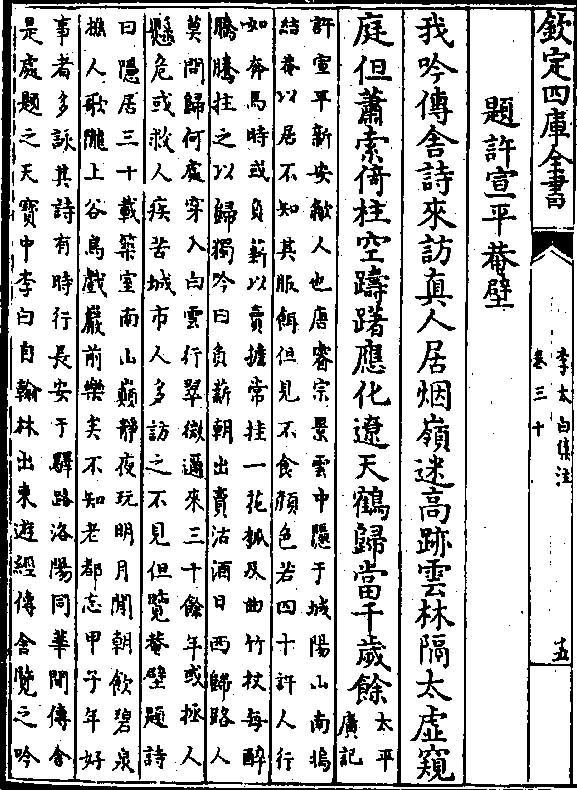 欽定四庫全書
李太白集注
卷三十
五
題許宣平菴壁
我吟傳舍詩來訪真人居烟嶺迷高跡雲林隔太虛窺
庭但蕭索倚柱空躊躇應化遼天鶴歸當千歲餘
太平
廣記
許宣平新安歙人也唐睿宗景雲中隱于城陽山南塢
結菴以居不知其服餌但見不食顏色若四十許人行
如奔馬時或負薪以賣擔常挂一花瓠及曲竹杖每醉
騰騰拄之以歸獨吟曰負薪朝出賣沽酒日西歸路人
莫問歸何處穿入白雲行翠微邇來三十餘年或拯人
懸危或救人疾苦城市人多訪之不見但覽菴壁題詩
曰隱居三十載築室南山巔靜夜玩明月閒朝飲碧泉
樵人歌隴上谷鳥戲巖前樂矣不知老都忘甲子年好
事者多詠其詩有時行長安于驛路洛陽同華間傳舍
是處題之天寶中李白自翰林出東遊經傳舍覽之吟